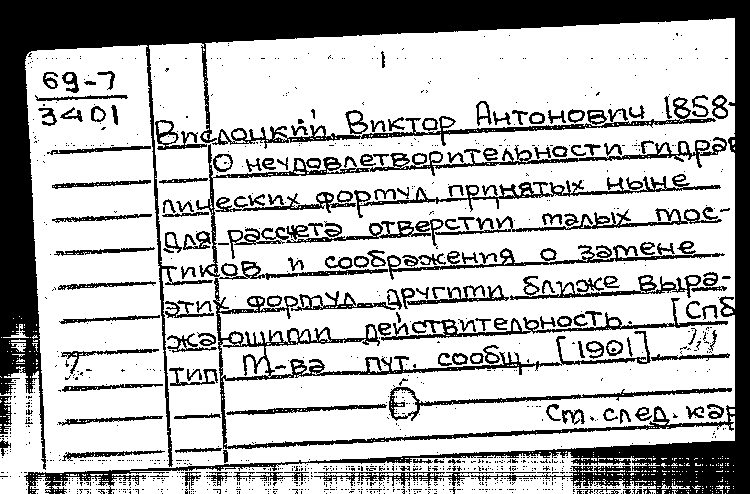 69-7
3401
Вислоцкий, Виктор Антонович, 1858-
О неудовлетворительности гидрав
лических формул, принятых ныне
для рассчета отверстий малых мос-
тиков, и соображения о замене
этих формул другими ближе выра-
жающими действительность. [Спб
тип М-ва пут. сообщ., [1901]
Ст. след. кар